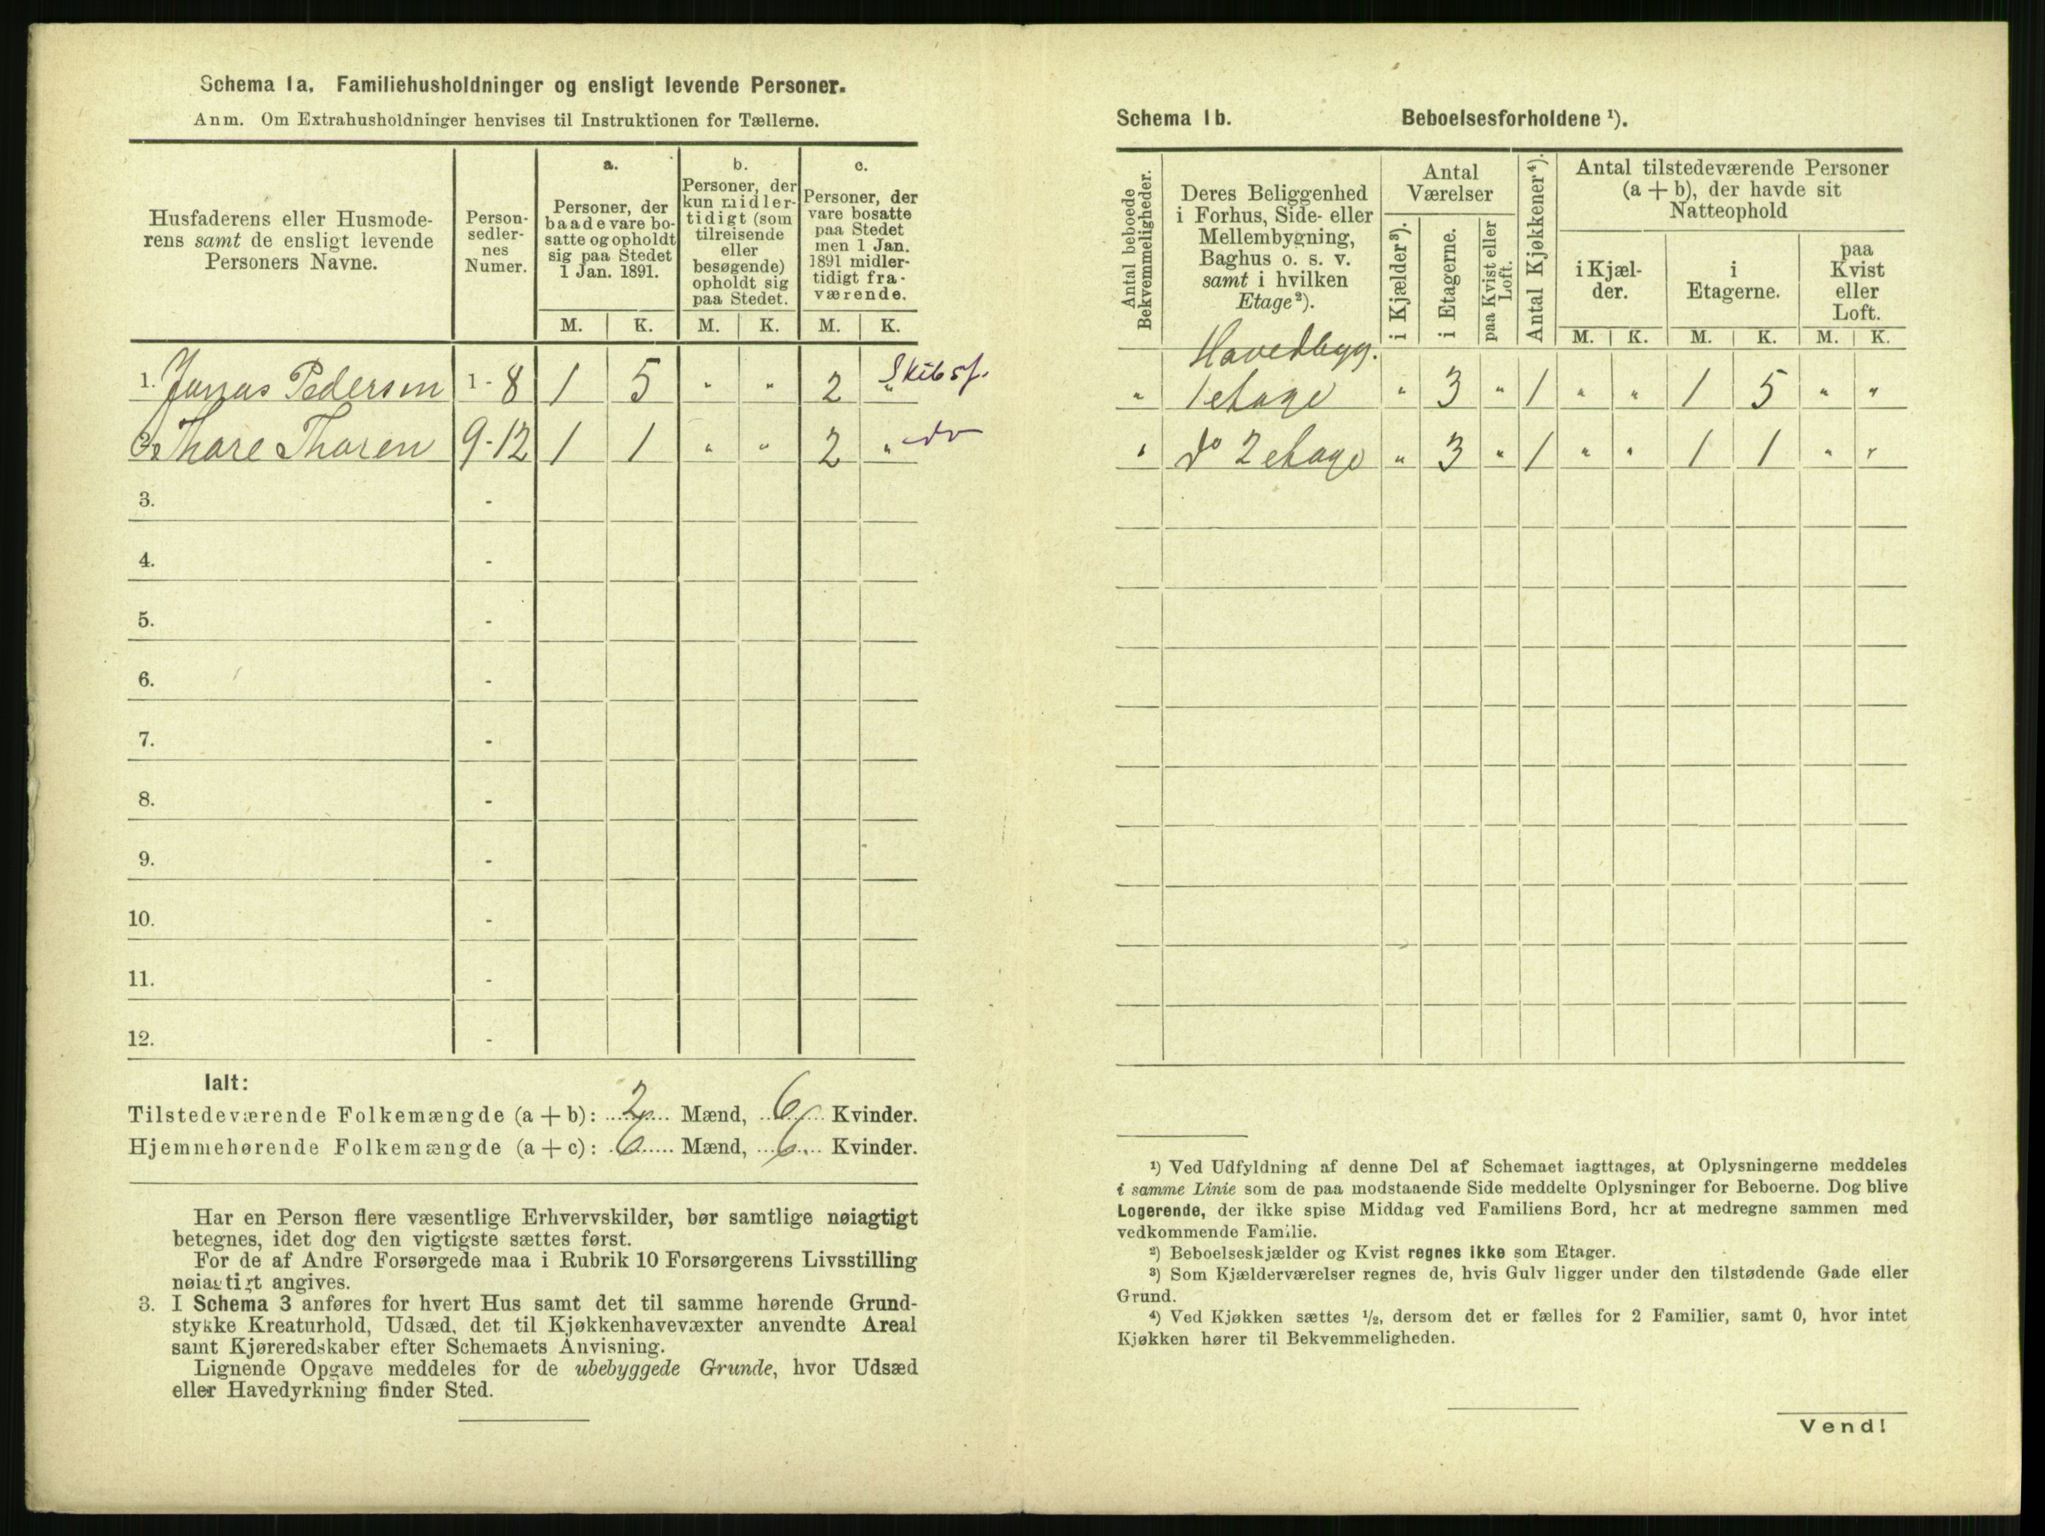 Schema 1a. Familiehusholdninger og ensligt levende Personer.
Anm. Om Extrahusholdninger henvises til Instruktionen for Tællerne.
Husfaderens eller Husmode-
rens samt de ensligt levende
Personers Navne.
Person-
sedler-
nes
Numer.
a.
Personer, der
baade vare bo-
satte og opholdt
sig paa Stedet
1 Jan. 1891.
M. K.
b.
Personer, der
kun midler-
tidigt (som
tilreisende
eller
besøgende)
opholdt sig
paa Stedet.
M. K.
c.
Personer, der
vare bosatte
paa Stedet
men 1 Jan.
1891 midler-
tidigt fra-
værende.
M. K.
1. Jonas Pedersen 1 - 8 1 5 " " 2 " Skibsf.
2. Thore Thoren 9 - 12 1 1 " " 2 " do
3. -
4. -
5. -
6. -
7. -
8. -
9. -
10. -
11. -
12. -
Ialt:
Tilstedeværende Folkemængde (a + b): 2 Mænd, 6 Kvinder.
Hjemmehørende Folkemængde (a + c): 6 Mænd, 6 Kvinder.
Har en Person flere væsentlige Erhvervskilder, bør samtlige nøiagtigt
betegnes, idet dog den vigtigste sættes først.
For de af Andre Forsørgede maa i Rubrik 10 Forsørgerens Livsstilling
nøiagtigt angives.
3. I Schema 3 anføres for hvert Hus samt det til samme hørende Grund-
stykke Kreaturhold, Udsæd, det til Kjøkkenhavevæxter anvendte Areal
samt Kjøreredskaber efter Schemaets Anvisning.
Lignende Opgave meddeles for de ubebyggede Grunde, hvor Udsæd
eller Havedyrkning finder Sted.
Schema 1b. Beboelsesforholdene ¹).
Antal beboede
Bekvemmeligheder.
Deres Beliggenhed
i Forhus, Side- eller
Mellembygning,
Baghus o. s. v.
samt i hvilken
Etage²).
Antal
Værelser
i Kjælder³).
i Etagerne.
paa Kvist eller
Loft.
Antal Kjøkkener⁴).
Antal tilstedeværende Personer
(a + b), der havde sit
Natteophold
i Kjæl-
der.
i
Etagerne.
paa
Kvist
eller
Loft.
M. K. M. K. M. K.
Hovedbygg.
" 1 etage " 3 " 1 " " 1 5 " "
" do 2 etage " 3 " 1 " " 1 1 " "
¹) Ved Udfyldning af denne Del af Schemaet iagttages, at Oplysningerne meddeles
i samme Linie som de paa modstaaende Side meddelte Oplysninger for Beboerne. Dog blive
Logerende, der ikke spise Middag ved Familiens Bord, her at medregne sammen med
vedkommende Familie.
²) Beboelseskjælder og Kvist regnes ikke som Etager.
³) Som Kjælderværelser regnes de, hvis Gulv ligger under den tilstødende Gade eller
Grund.
⁴) Ved Kjøkken sættes ½, dersom det er fælles for 2 Familier, samt 0, hvor intet
Kjøkken hører til Bekvemmeligheden.
Vend!